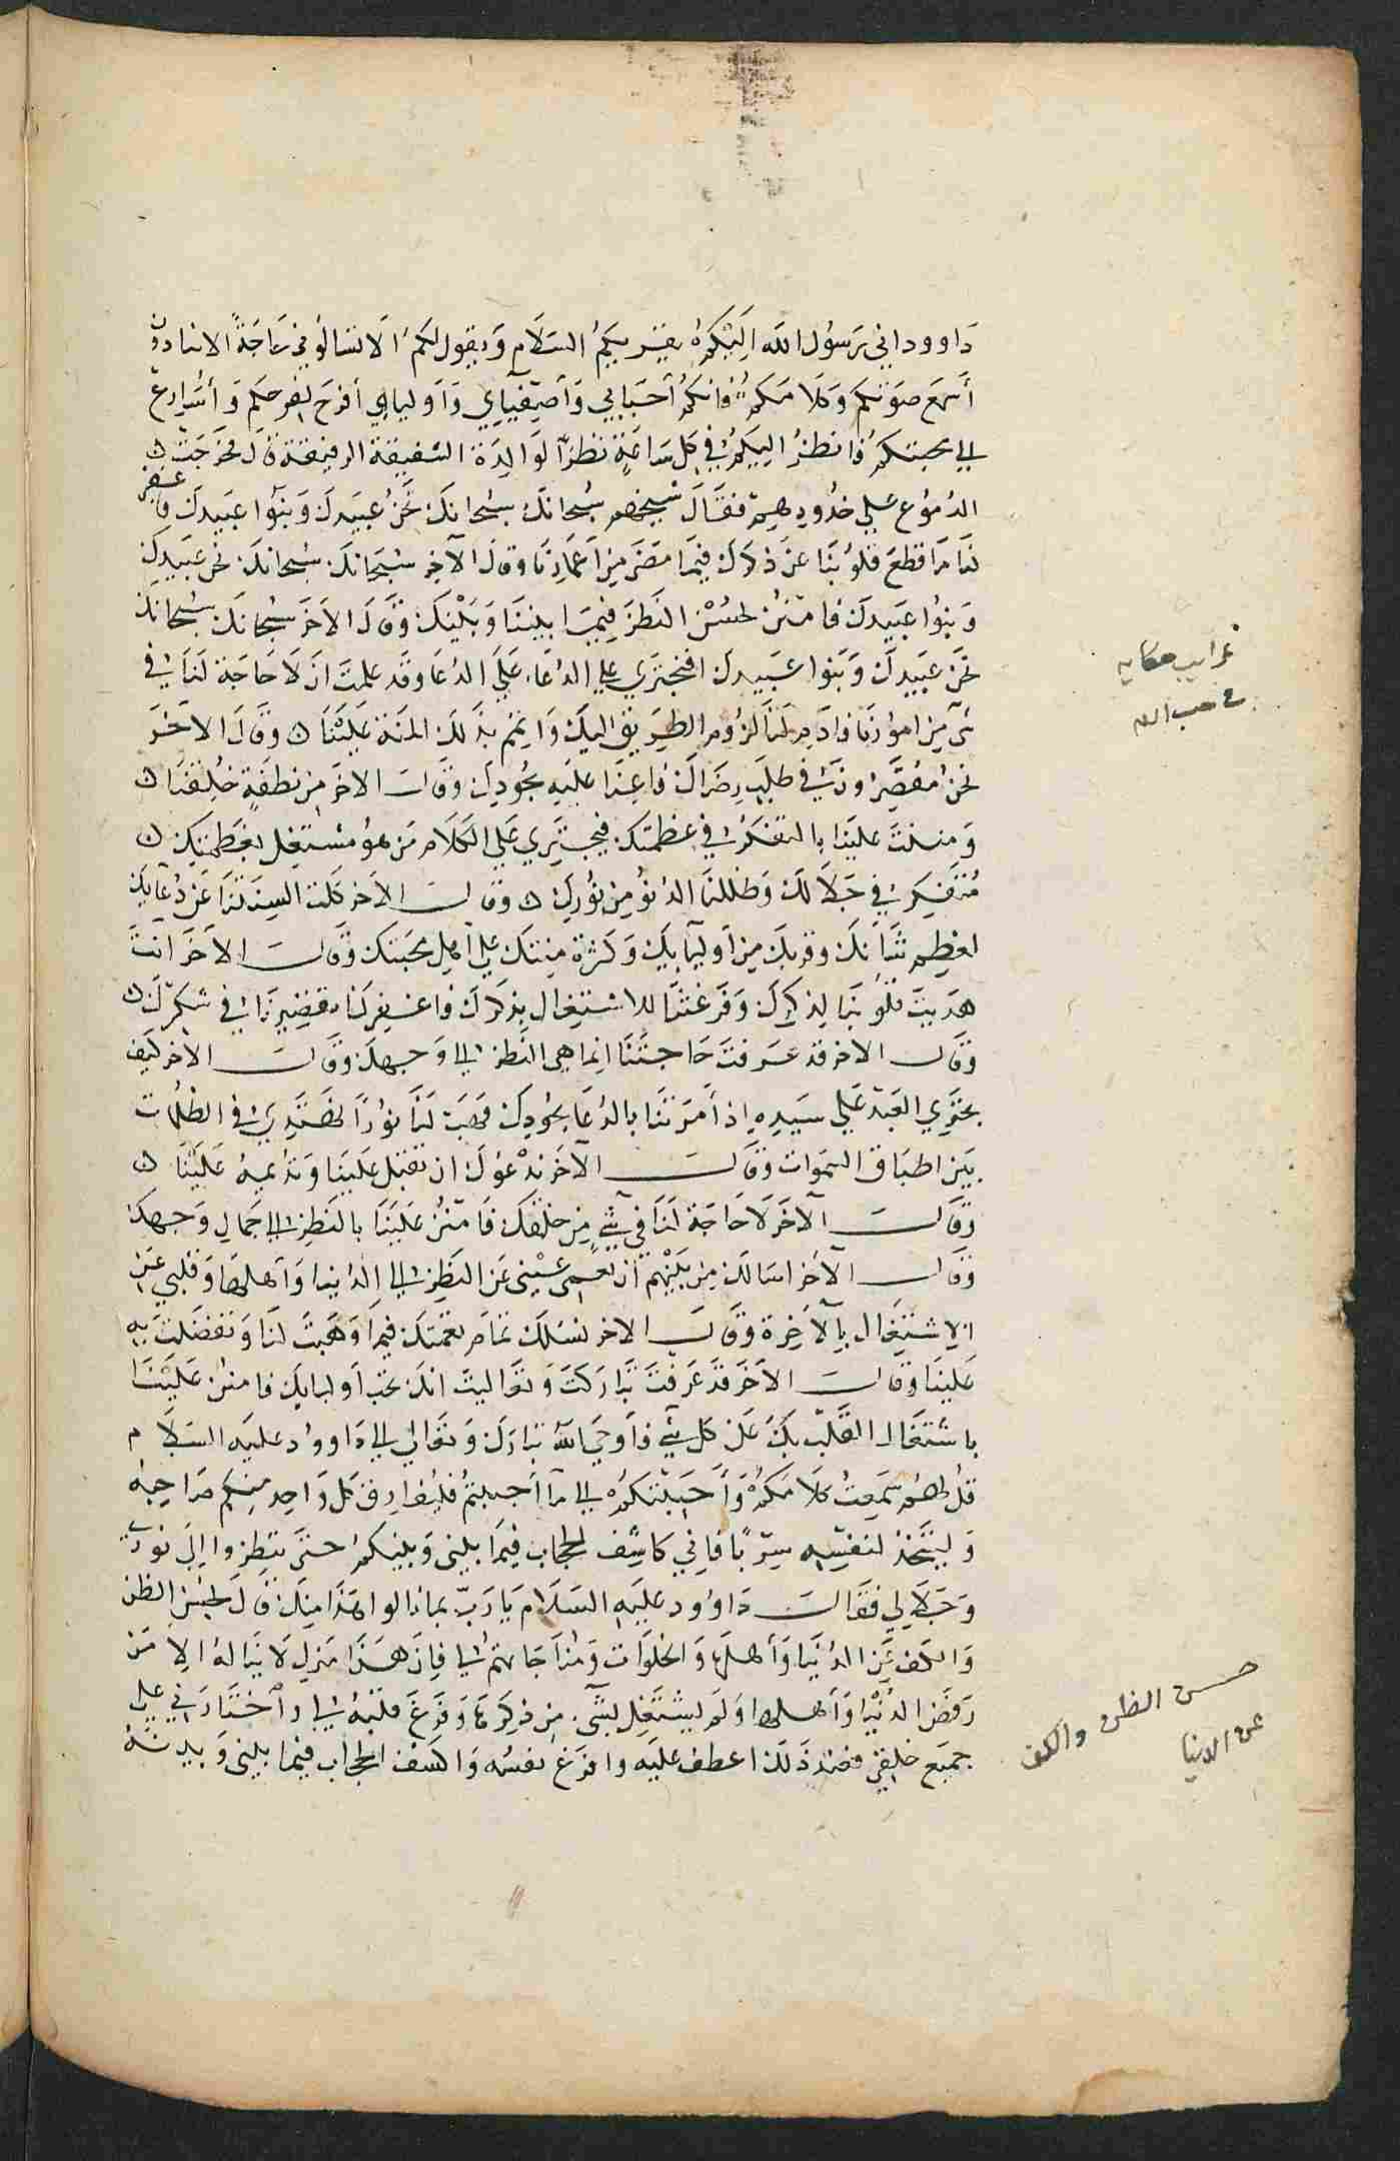 داوود اني رسول الله اليكم يقريكم السلام ويقول لكم الا تسالوني حاجة الا تنادوني
أسمع صوتكم وكلامكم فانكم أحبابي وأصفيآيي وأوليايي أفرح لفرحكم وأسارع
الي محبتكم وانظر اليكم في كل ساعة نظر الوالدة الشفيقة الرفيقة قال فجرت
الدموع علي خدودهم فقال شيخهم سبحانك سبحانك نحن عبيدك وبنوا عبيدك فاغفر
لنا ما قطع قلوبنا عن ذكرك فيما مضي من أعمارنا وقال الآخر سبحانك سبحانك نحن عبيدك
وبنوا عبيدك فامنن بحسن النظر فيما بيننا وبينك وقال الاخر سبحانك سبحانك
نحن عبيدك وبنوا عبيدك افنجتري علي الدعاء وقد علمت ان لا حاجة لنا في
شي من امورنا فادم لنا لزوم الطريق اليك واتمم بذلك المنة علينا وقال الاخر
نحن مقصرون في طلب رضاك فاعنا عليه بجودك وقال الاخر من نطفة خلقتنا
ومننت علينا بالتفكر في عظمتك فيجتري علي الكلام من هو مشتغل بعظمتك
متفكر في جلالك وطلبنا الدنو من نورك وقال الاخر كلت السنتنا عن دعآيك
لعظم شأنك وقربك من أوليآيك وكثرة منتك علي أهل محبتك وقال الاخر انت
هديت قلوبنا لذكرك وفرغتنا للاشتغال بك فاغفر لنا تقصيرنا في شكرك
وقال الاخر قد عرفت حاجتنا انما هي النظر الي وجهك وقال الاخر كيف
يجتري العبد علي سيده إذ أمرتنا بالدعا بجودك فهب لنا نورا نهتدي به في الظلمات
بين اطباق السموات وقال الآخر ندعوك ان تقبل علينا وتديمه علينا
وقال الآخر لا حاجة لنا في شي من خلقك فامنن علينا بالنظر الي جمال وجهك
وقال الآخر اسالك من بينهم أن تعمي عيني عن النظر الي الدنيا وأهلها وقلبي عن
الاشتغال بالآخرة وقال الاخر نسئلك تمام نعمتك فيما وهبت لنا وتفضلت به
علينا وقال الاخر قد عرفت تباركت وتعاليت انك تحب أوليايك فامنن علينا
باشتغال القلب بك عن كل شي فأوحي الله تبارك وتعالي الي داوود عليه السلام
قل لهم سمعت كلامكم وأجبتكم الي ما أحببتم فليفارق كل واحد منكم صاحبه
وليتخذ لنفسه سربا فاني كاشف الحجاب فيما بيني وبينكم حتي تنظروا إلي نوري
وجلالي فقال داوود عليه السلام يا رب بما نالوا هذا منك قال بحسن الظن
والكف عن الدنيا وأهلها والخلوات ومناجاتهم لي فإن هذا منزل لا يناله الا من
رفض الدنيا وأهلها ولم يشتغل بشي من ذكرها وفرغ قلبه لي واختارني علي
جميع خلقي فعند ذلك اعطف عليه وافرغ نفسه واكشف الحجاب فيما بيني وبينه
غرايب حكايه
في حب الله
حسن الظن والكف
عن الدنيا